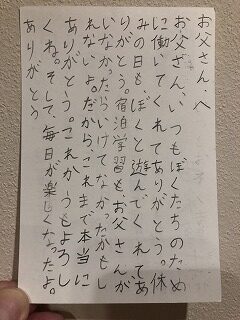 お父さんへ
お父さん、いつもぼくたちのため
に働いてくれてありがとう。休
みの日も、ぼくと遊んでくれてあ
りがとう。宿泊学習も、お父さんが
いなかったらいけてなかったかもし
れないよ。だからこれまで本当に
ありがとう。これからもよろし
くね。そして、毎日が楽しくなったよ。
ありがとう